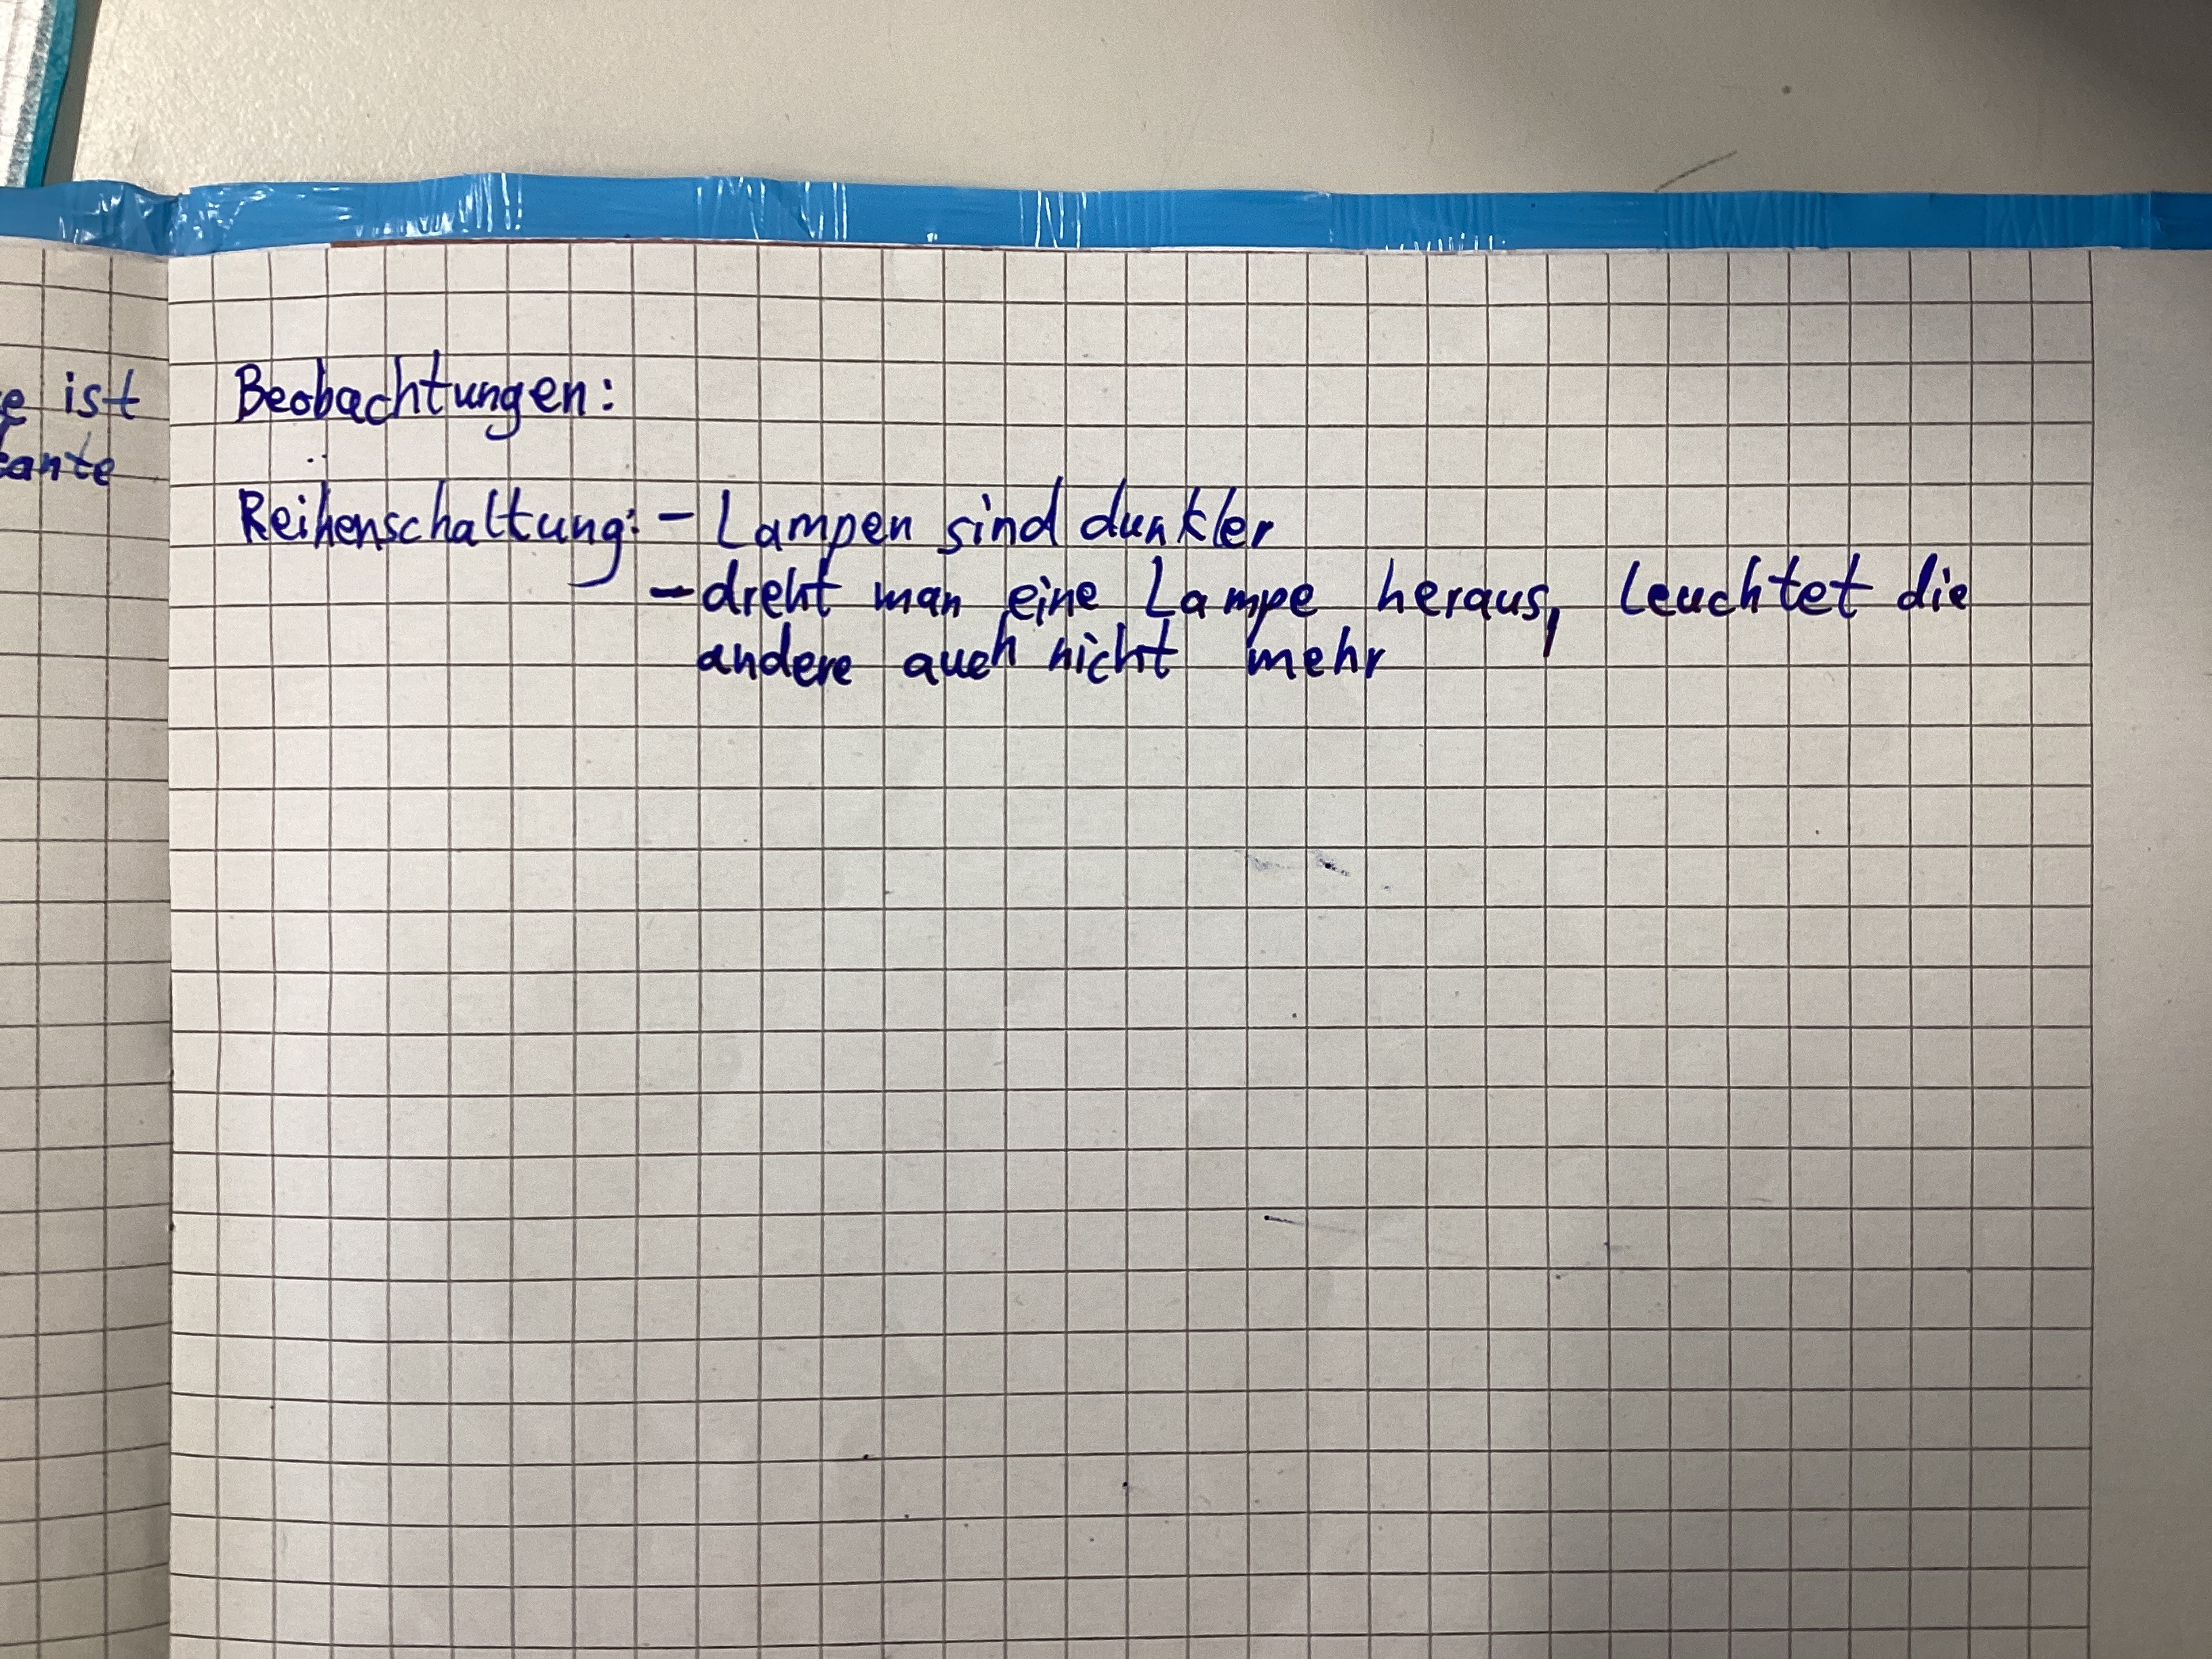 e ist
Beobachtungen:
Reihenschaltung: - Lampen sind dunkler
- dreht man eine Lampe heraus, leuchtet die
andere auch nicht mehr